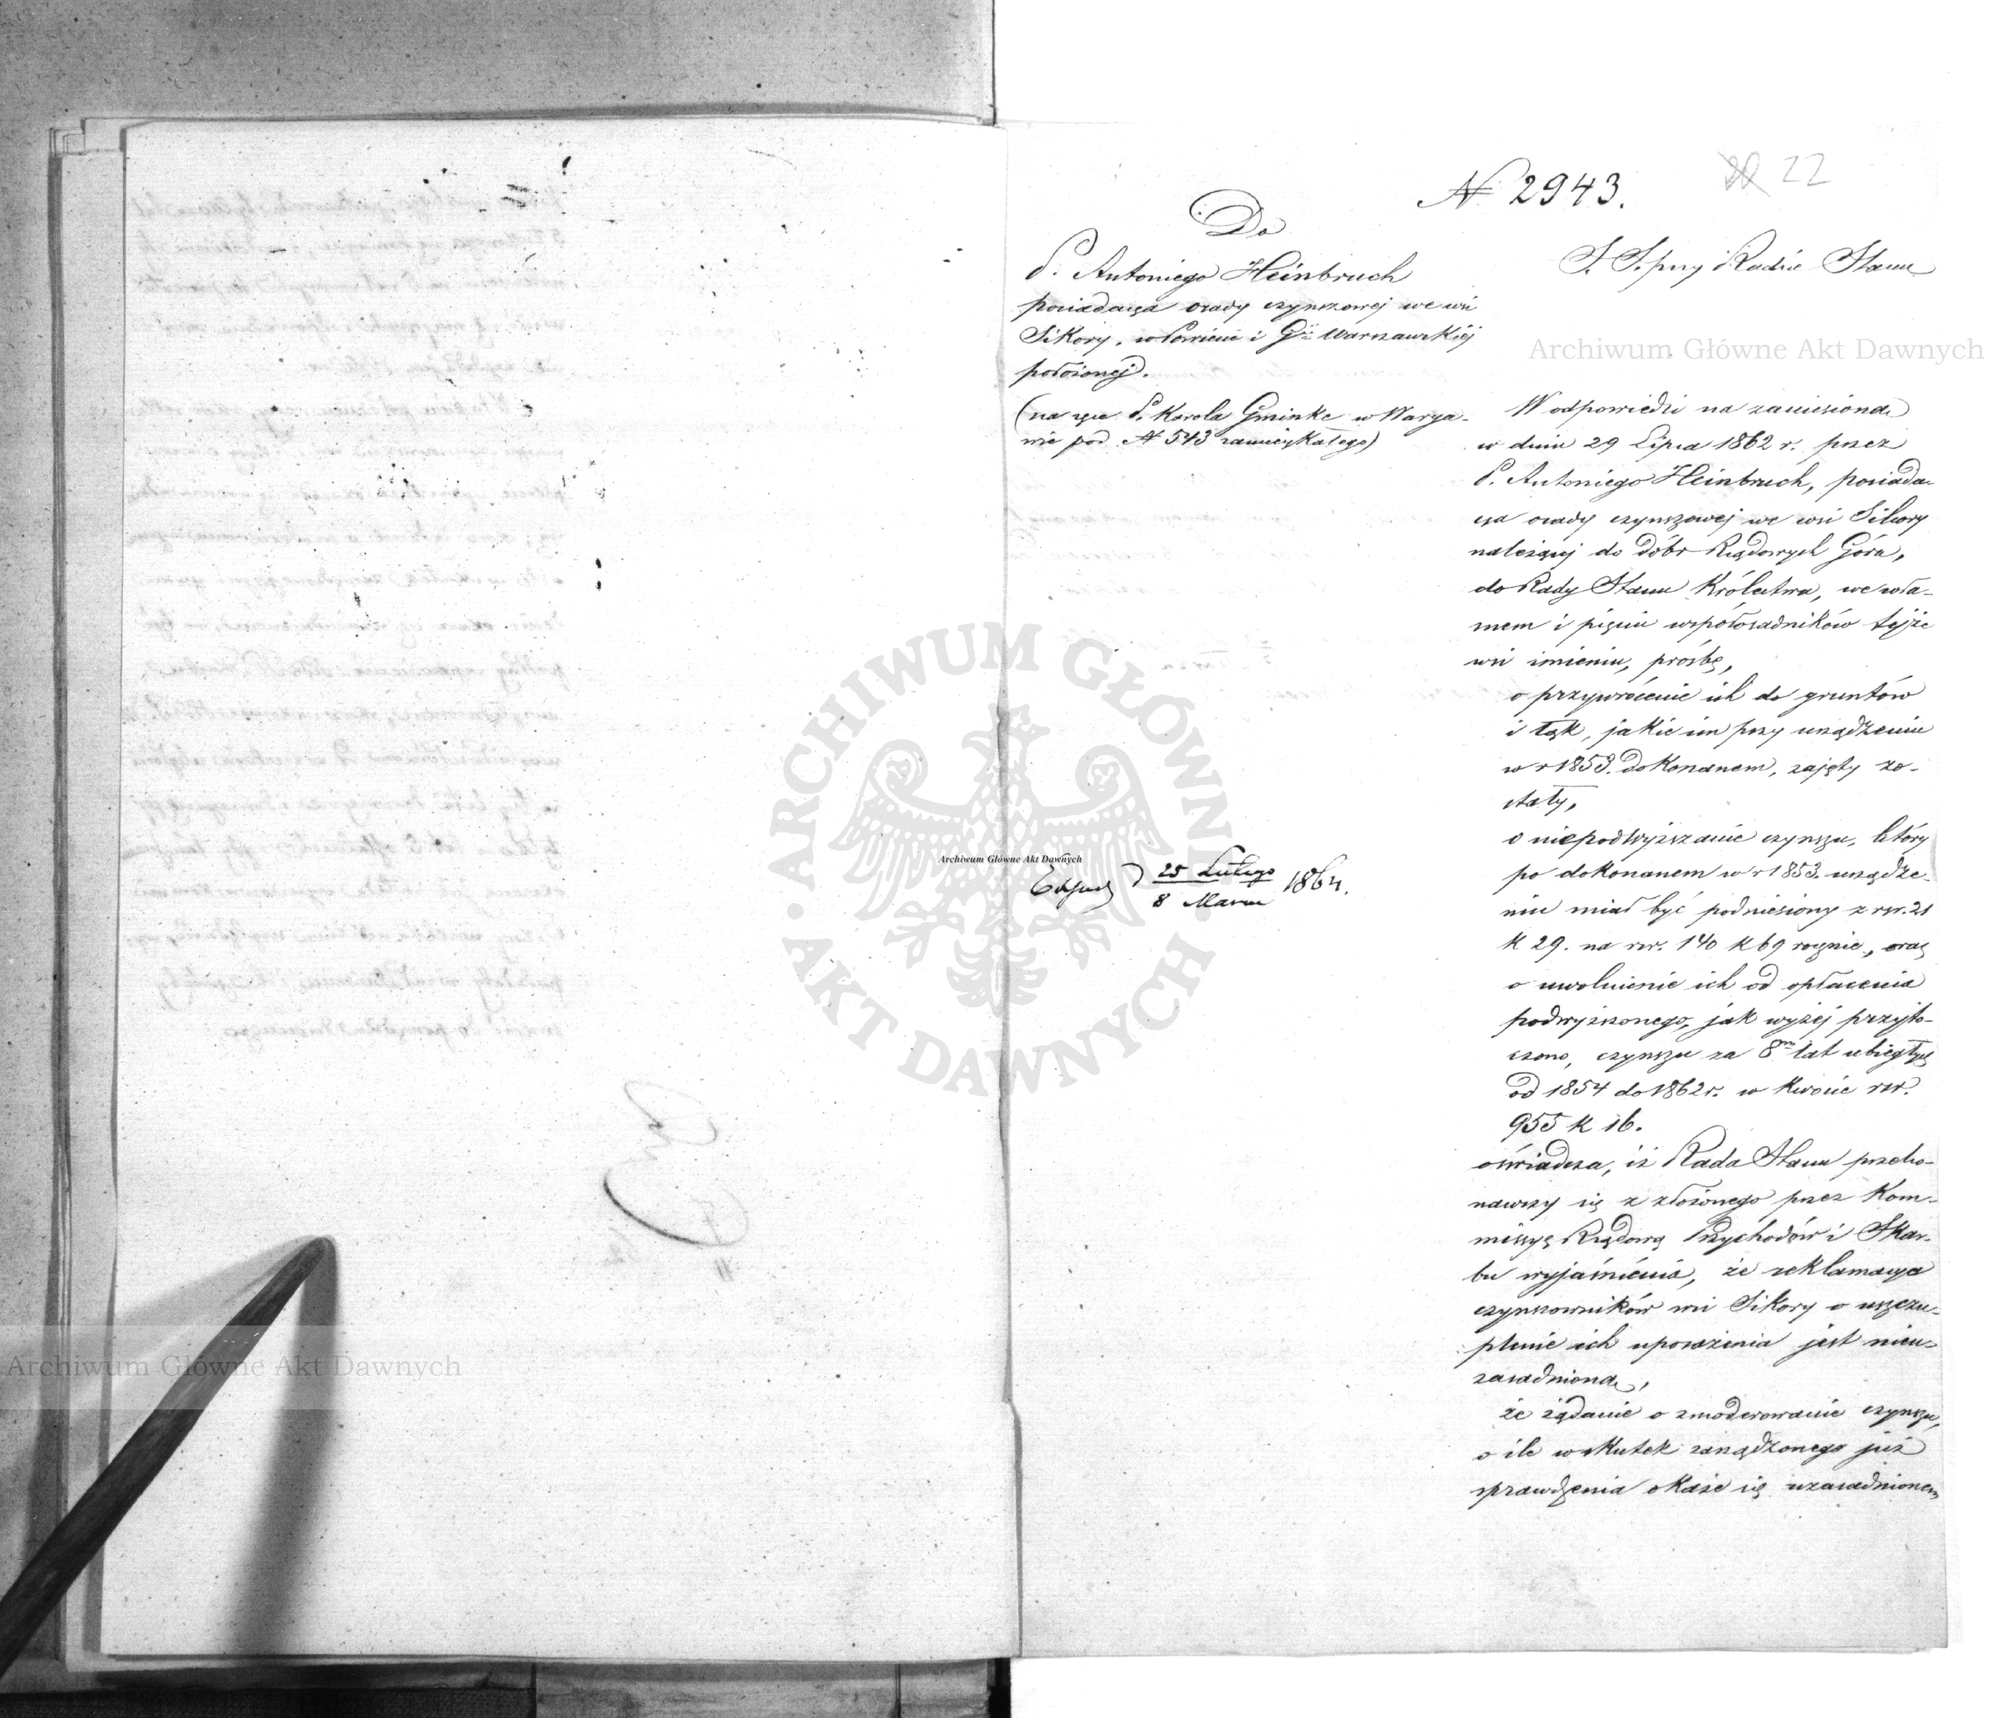 N 2943.
20 22
Do
P. Antoniego Heinbruch
posiadacza osady czynszowej we wsi
Sikory, w Powiecie i Gii Warszawskiej
położonej.
(na ręce P. Karola Gminke w Warsza-
wie pod N 543 zamieszkałego)
S. S. przy Radzie Stanu
W odpowiedzi na zaniesioną
w dniu 29 Lipca 1862 r. przez
P. Antoniego Heinbruch, posiada-
cza osady czynszowej we wsi Sikory
należącej do dóbr Rządowych Góra,
do Rady Stanu Królestwa, we wła-
snem i pięciu współosadników tejże
wsi imieniu, prośbę,
o przywrócenie ich do gruntów
i łąk, jakie im przy urządzeniu
w r 1853. dokonanem, zajęty zo-
stały,
o niepodwyższanie czynszu, który
po dokonanem w r 1853 urządze-
niu miał być podniesiony z rsr. 21
k 29. na rsr. 140 k 69 rocznie, oraz
o uwolnienie ich od opłacenia
podwyższonego, jak wyżej przyto-
czono, czynszu za 8m lat ubiegłych
od 1854 do 1862 r. w kwocie rsr.
955 k 16.
oświadcza, iż Rada Stanu przeko-
nawszy się z złożonego przez Kom-
missyę Rządową Przychodów i Skar-
bu wyjaśnienia, że reklamacya
czynszowników wsi Sikory o uszczu-
plenie ich uposażenia jest nieu-
zasadnioną,
że żądanie o zmoderowanie czynszu,
o ile wskutek zarządzonego już
sprawdzenia okaże się uzasadnionem
Exped d 25 Lutego 1864.
8 Marca
Archiwum Główne Akt Dawnych
Archiwum Główne Akt Dawnych
Archiwum Główne Akt Dawnych
ARCHIWUM GŁÓWNE AKT DAWNYCH